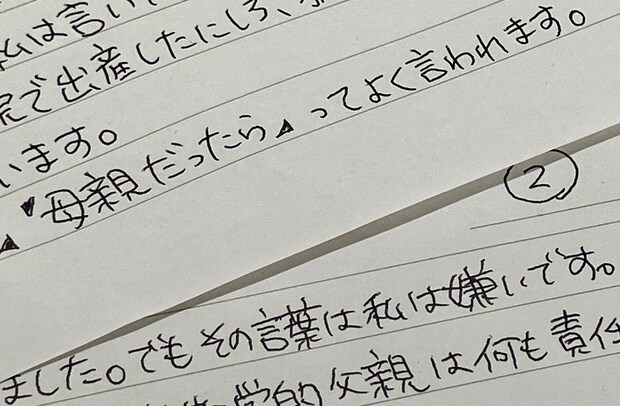 私は言い
で出産したにしろ、
います。
"母親だったら〟ってよく言われます。
②
ました。でもその言葉は私は嫌いです。
学的父親は何も責任